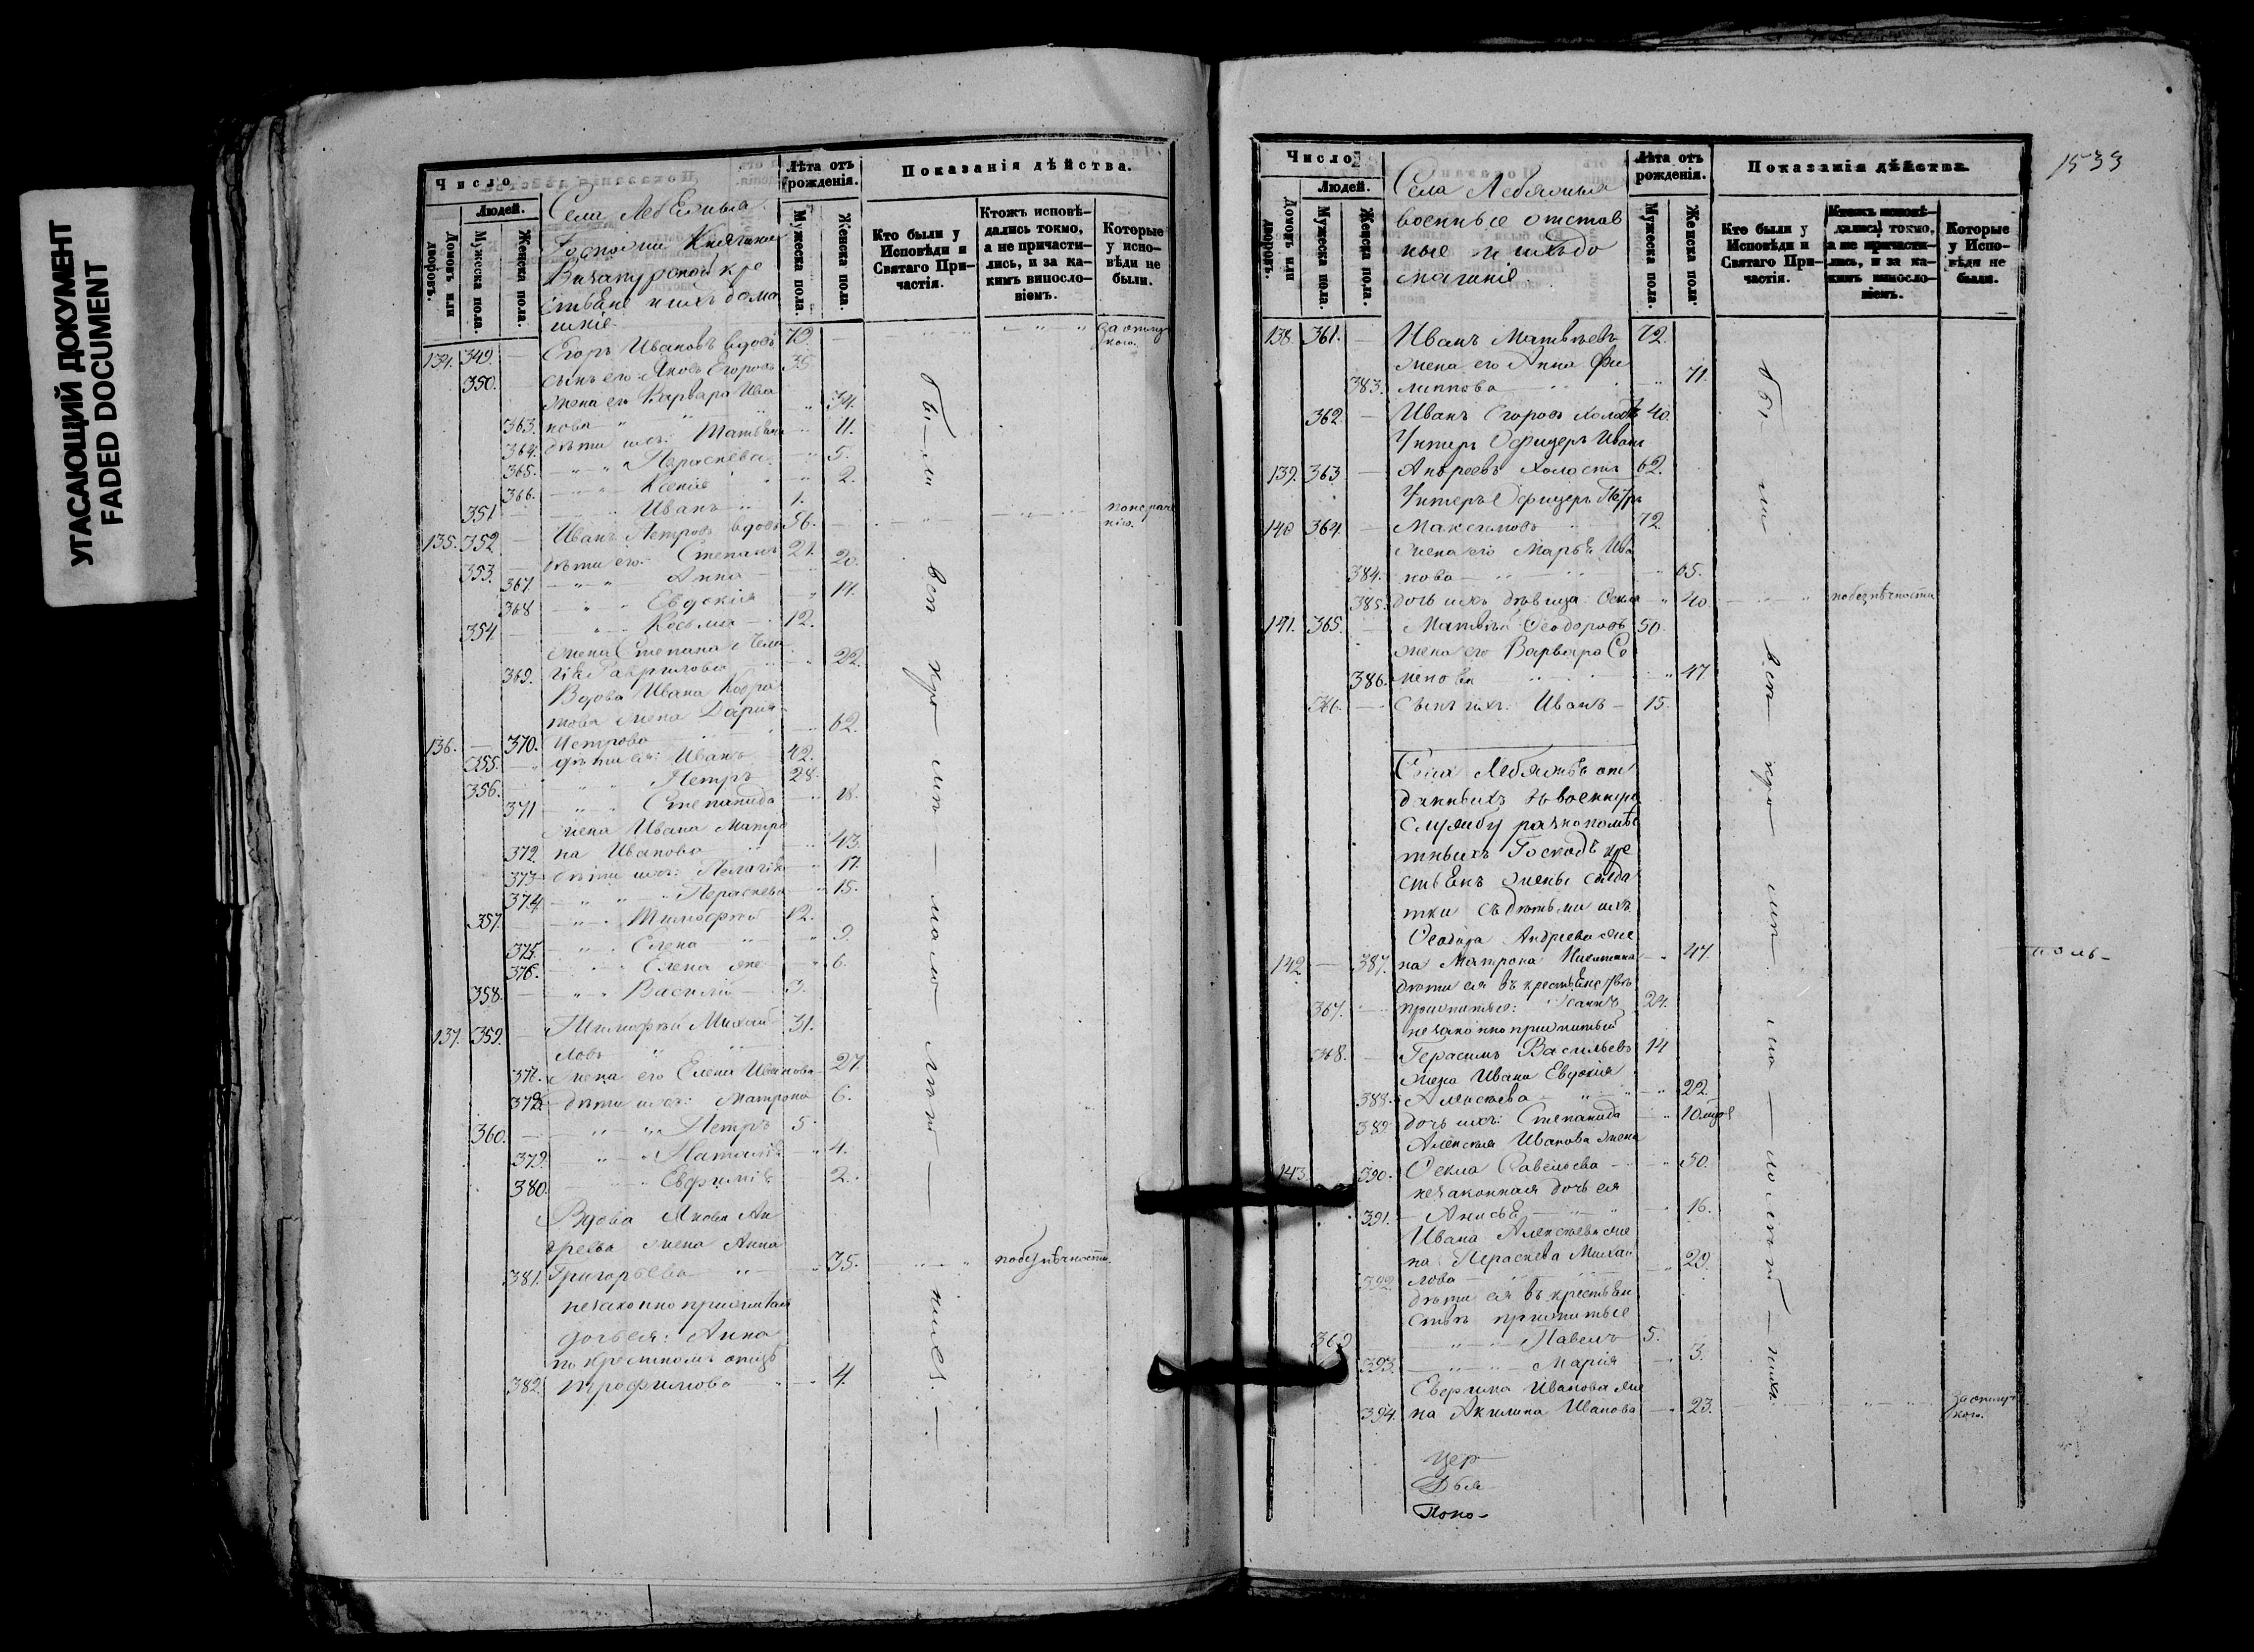 УГАСАЮЩИЙ ДОКУМЕНТ
FADED DOCUMENT
Число
Людей.
Домовъ или дворовъ.
Мужеска пола.
Женска пола.
Лѣта отъ рожденія.
Мужеска пола.
Женска пола.
Показанія дѣйства.
Кто были у Исповѣди и Святаго Причастія.
Ктожъ исповѣдались токмо, а не причастились, и за какимъ винословіемъ.
Которые у исповѣди не были.
Госпожи Княгини
крестьяне и ихъ домашніе
134. 349. Егоръ Ивановъ вдовъ за отлучкою.
350. сынъ его Яковъ Егоровъ 35
жена его Варвара Ива
363. нова 34.
364. дѣти ихъ: Татьяна 11.
365. Параскева 5.
366. Ксенія 2.
351 Иванъ 1.
135. 352 Иванъ Петровъ вдовъ 56.
353. дѣти его: Степанъ 21.
367. Анна 20.
368 Евдокія 14.
354. Косьма 12.
жена Степана
369. Гаврилова 22.
Вдова Ивана Кодра
това жена Дарія
136. 370. Петрова 62.
355. дѣти ея: Иванъ 42.
356. Петръ 28.
371 Степанида 18.
жена Ивана Матро
372. на Иванова 43.
373 дѣти ихъ: Пелагія 17.
374 Параскева 15.
357. Тимофей 12.
375. Елена 9.
376. Елена же 6.
358. Василій 3.
137. 359. Тимофей Михай 31.
ловъ
жена его Елена Иванова 27.
378. дѣти ихъ: Матрона 6.
360. Петръ 5.
379. Наталія 4.
380. Евфимія 2.
Вдова Якова Ан
дреева жена Анна
381. Григорьева 35. по безпѣчности.
незаконно прижитая
дочь ея: Анна
по крестномъ отцѣ
382. Трофимова 4.
были
вси кро ми мало лѣт нихъ.
1533
Число
Людей.
Домовъ или дворовъ.
Мужеска пола.
Женска пола.
Лѣта отъ рожденія.
Мужеска пола.
Женска пола.
Показанія дѣйства.
Кто были у Исповѣди и Святаго Причастія.
Ктожъ исповѣдались токмо, а не причастились, и за какимъ винословіемъ.
Которые у Исповѣди не были.
Села Лебяжья
военные отстав
ные и ихъ до
машніе
138. 361. Иванъ Матвѣевъ 72.
жена его Анна Фи
383. липпова 71.
362. Иванъ Егоровъ холостъ 40.
Унтеръ Офицеръ Иванъ
139. 363 Андреевъ холостъ 62.
Унтеръ Офицеръ Петръ
140 364. Максимовъ 72.
жена его Марья Ива
384. нова 65.
385. дочь ихъ дѣвица Фекла 40. по безпѣчности
141. 365. Матвѣй Ѳеодоровъ 50.
жена его Варвара Се
386. менова 47
366. сынъ ихъ: Иванъ 15.
Села Лебяжья от
данныхъ въ военную
службу разнопомѣс
тныхъ Господъ кре
стьянъ жены солда
тки съ дѣтьми ихъ
Ѳеодора Андреева же
142 387. на Матрона Никитина 47.
дѣти ея въ крестьянствѣ
367. прижитые: 24.
незаконноприжитый
368. Герасимъ Васильевъ 14
жена Ивана Евдокія
388. Алексѣева 22.
389 дочь ихъ: Степанида 10
Алексѣя Иванова жена
143. 390. Фекла Савельева 50.
незаконная дочь ея
391. Анисья 16.
Ивана Алексѣева же
на Параскева Михай
392. лова 29.
дѣти ея въ крестьян
ствѣ прижитые
369 Павелъ 5.
393. Марія 3.
Иванова же
394. на Акилина Иванова 23. за отлуч
кою.
вси кро ми мало лѣт нихъ